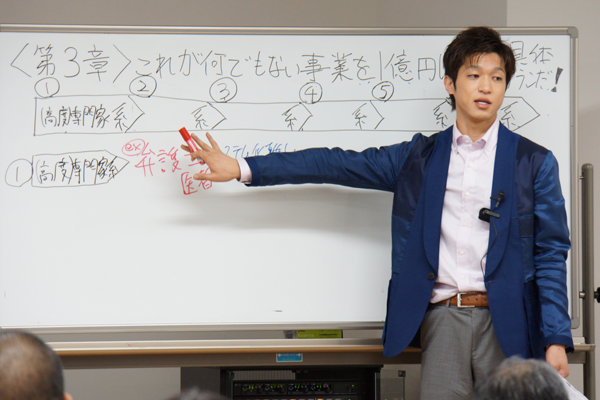 〈第3章〉これが何でもない事業を1億円 具体
プランだ!
① ② ③ ④ ⑤
高度専門家系 系 系 系 系 系
① 高度専門家系 ex) 弁護
医者